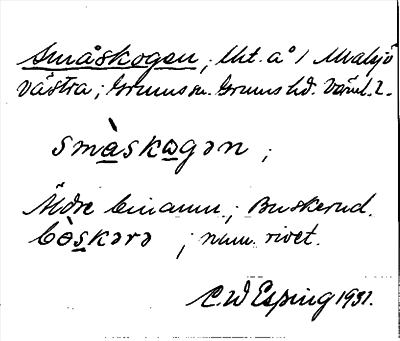 Småskogen, lht. å 1 Malsjö
västra; Grums sn. Grums hd. Värml. l.
småskωgən ;
Äldre binamn; Buskerud.
bɵ̀skərə ; num. rivet.
C.W Esping 1931.